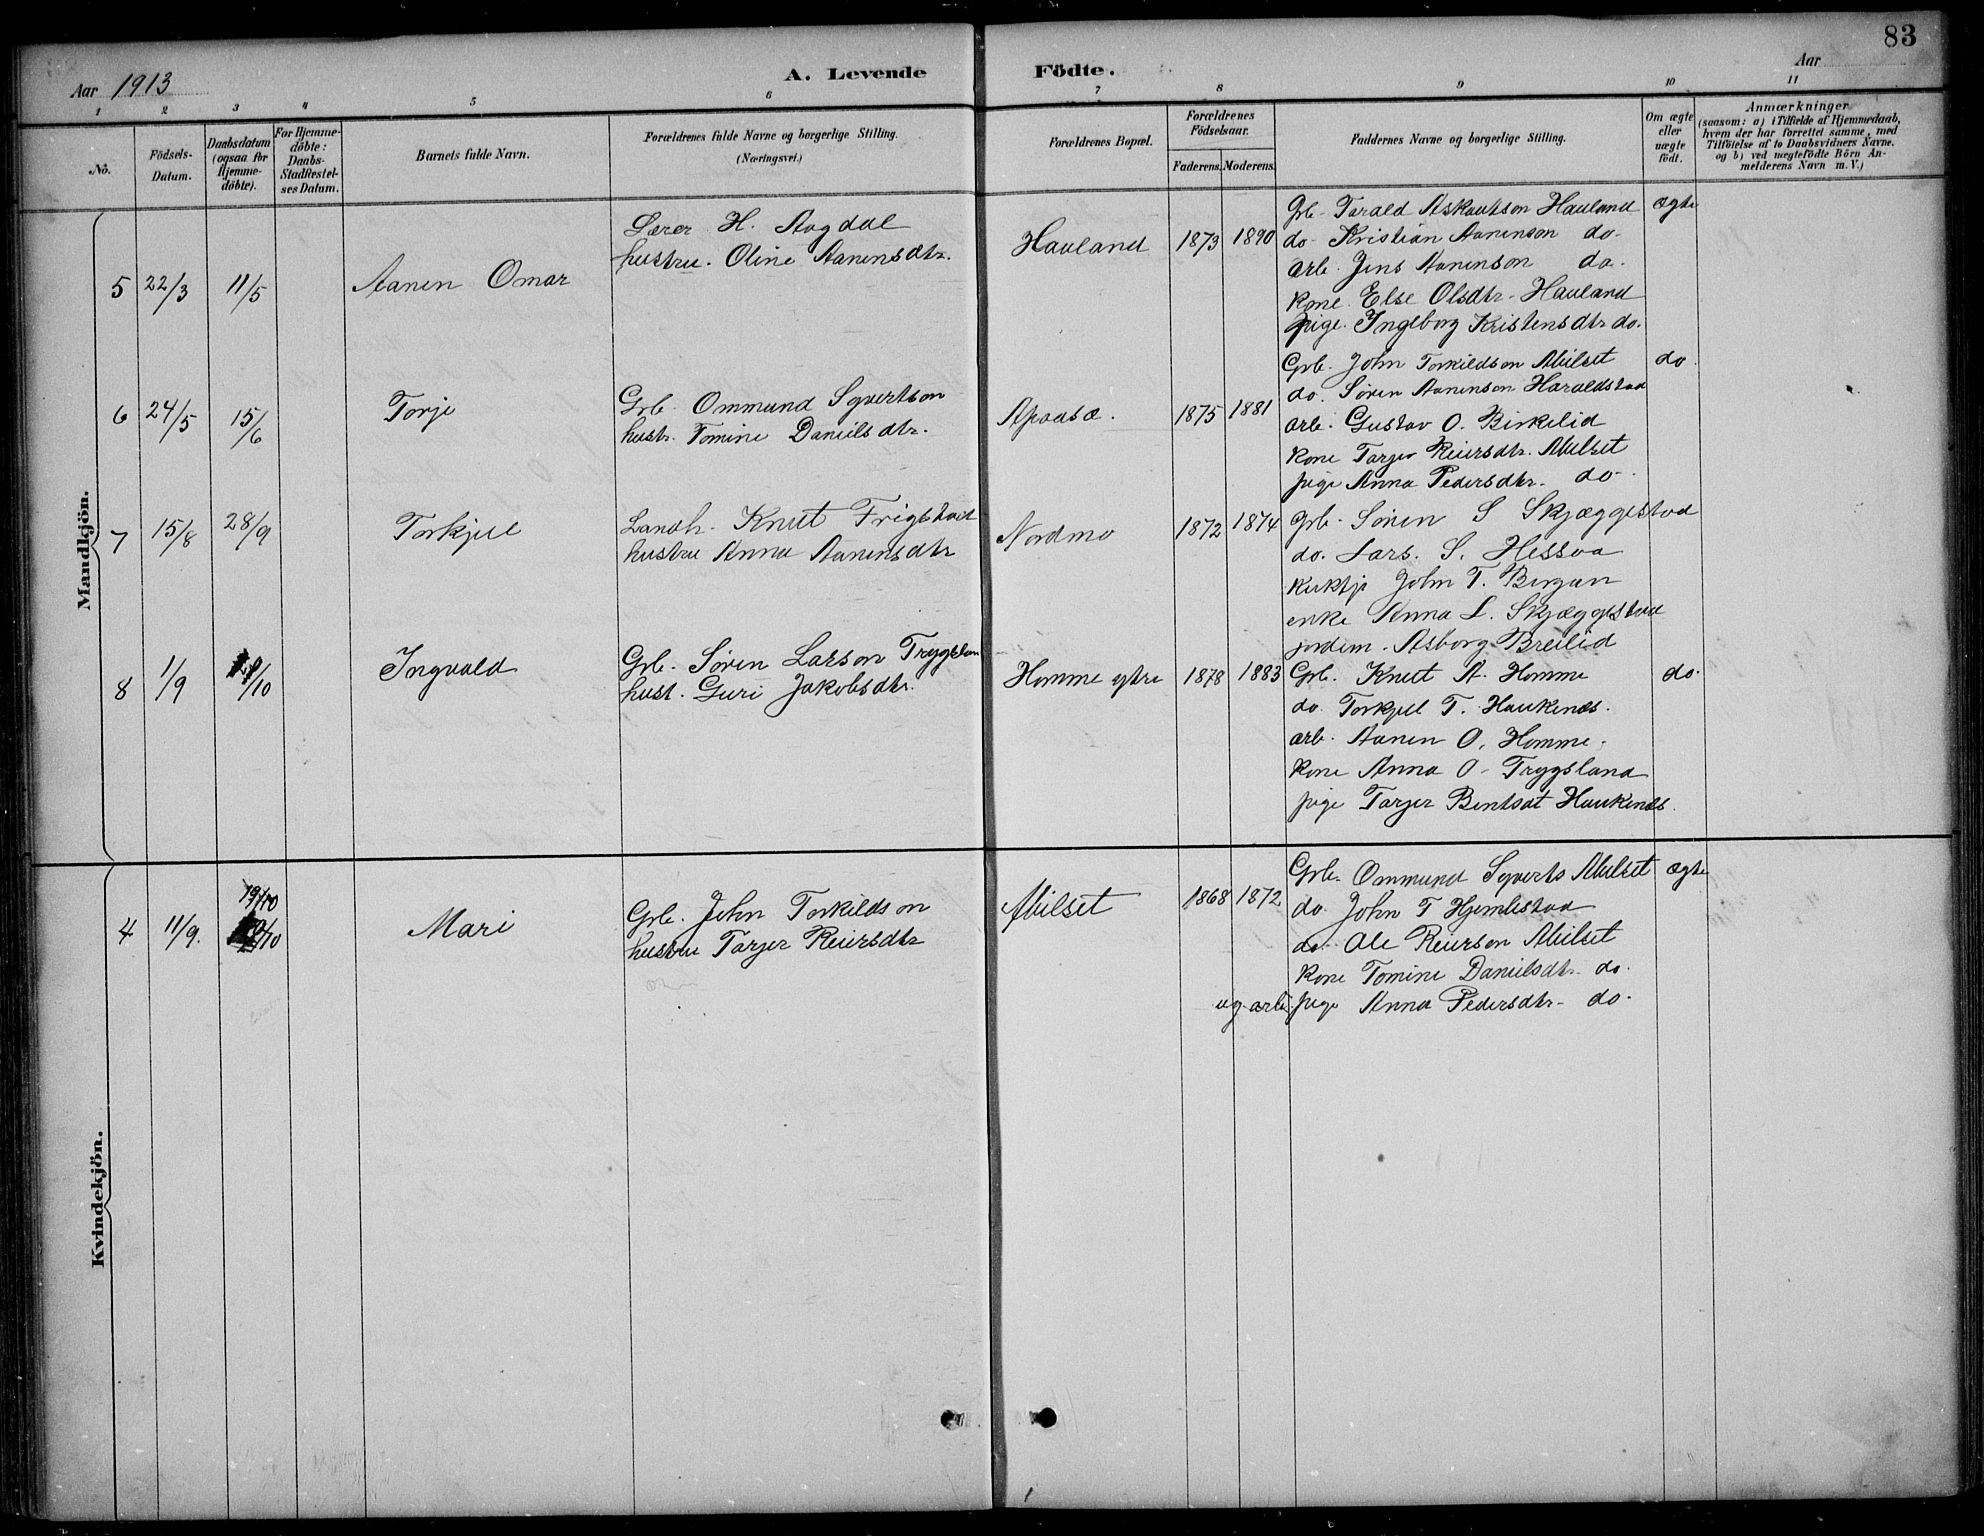 83
Aar 1913
A. Levende Födte.
Aar
1 2 3 4 5 6 7 8 9 10 11
No.
Födsels-Datum.
Daabsdatum (ogsaa for Hjemme-döbte).
For Hjemme-döbte: Daabs-Stadfæstel-ses Datum.
Barnets fulde Navn.
Forældrenes fulde Navne og borgerlige Stilling.
(Næringsvei.)
Forældrenes Bopæl.
Forældrenes Födselsaar.
Faderens. Moderens.
Faddernes Navne og borgerlige Stilling.
Om ægte eller uægte födt.
Anmærkninger
(saasom: a) i Tilfælde af Hjemmedaab,
hvem der har forrettet samme, med
Tilföielse af to Daabsvidners Navne.
og b) ved uegtefödte Börn An-
melderens Navn m. V.)
Mandkjön.
5 22/3 11/5 Aanen Omar
Lærer H. Aagdal
hustru. Oline Aanensdtr.
Hauland 1873 1890
Grb. Tarald Askautson Hauland ægte
do. Kristian Aanenson do.
arb. Jens Aanenson do.
kone. Else Olsdtr. Hauland
pige. Ingeborg Kristensdtr do.
6 24/5 15/6 Torje
Grb. Ommund Syvertson
hustr. Tomine Danielsdtr.
1875 1881
Grb. John Torkildson Mulset do
do. Søren Aanenson Haraldstad
arb. Gustav O. Birkelid
kone Tarjer Reiersdtr. Mulset
pige Anna Pedersdtr. do.
7 15/8 28/9 Torkjel
Landh. Knut Frigstad
hustru Anna Aanensdtr
Nordmo 1872 1874
Grb. Søren S Skjæggestad
do. Lars. S. Hessaa
John T. Bergan
enke Anna L. Skjæggestad
jordem. Asborg Breilid
8 1/9 Ingvald
Grb. Søren Larson Trygslan
hust. Guri Jakobsdtr.
Homme ytre 1878 1883
Grb. Knut A. Homme do.
do. Torkjel T. Haukenæs.
arb. Aanen O. Homme.
kone Anna O. Trygsland
pige Tarjer Bentsdt Haukenæs.
Kvindekjön.
4 11/9. 19/10 Mari
Grb. John Torkildson
hustru Tarjer Reiersdtr
Mulset 1868 1872
Grb. Ommund Syverts Mulset ægte
do. John T Hjemlestad
do. Ole Reierson Mulset
kone Tomine Danielsdtr. do.
ug. arb. pige Anna Pedersdtr. do.